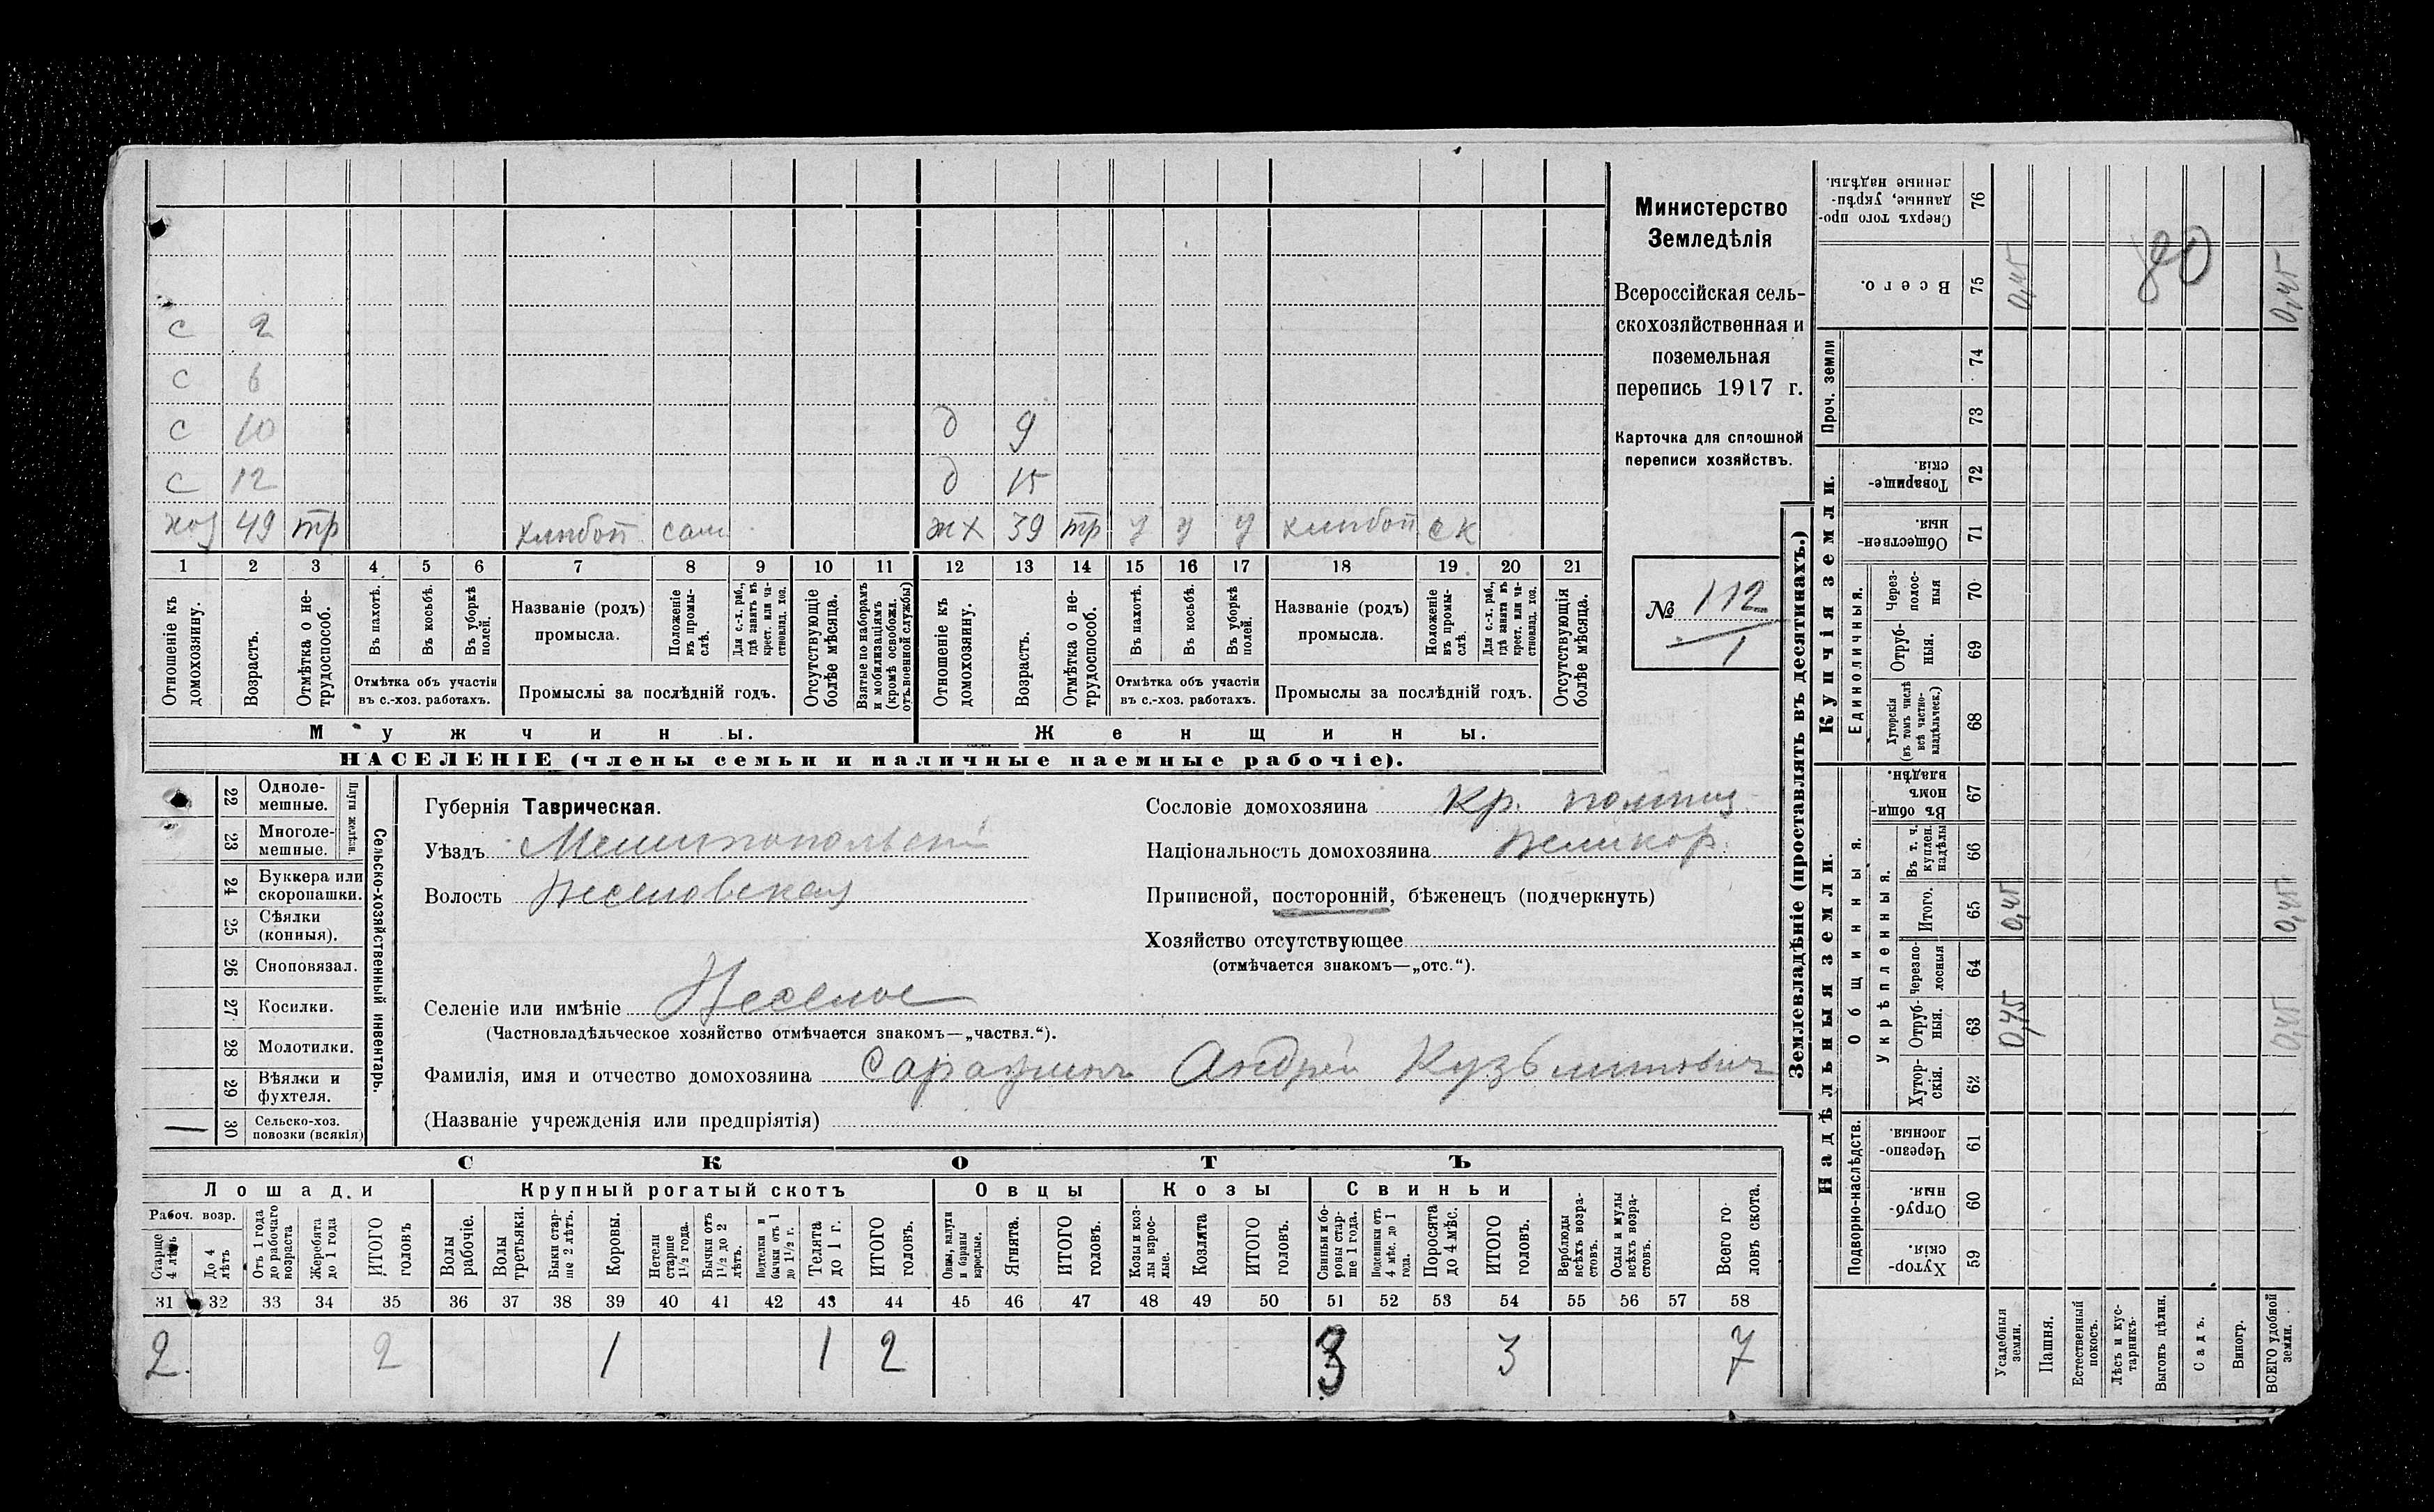 Министерство
Земледѣлія
Всероссійская сель-
скохозяйственная и
поземельная
перепись 1917 г.
Карточка для сплошной
переписи хозяйствъ.
№ 112
1
с 2
с 6
с 10 д 9
с 12 д 15
хоз 49 тр хлѣбоп сам жх 39 тр у у у хлѣбоп ск
1 2 3 4 5 6 7 8 9 10 11 12 13 14 15 16 17 18 19 20 21
Отношеніе къ домохозяину.
Возрастъ.
Отмѣтка о не-трудоспособ.
Въ пахотѣ.
Въ косьбѣ.
Въ уборкѣ полей.
Отмѣтка объ участіи въ с.-хоз. работахъ.
Названіе (родъ) промысла.
Положеніе въ промы-слѣ.
Для с.-х. раб., гдѣ занятъ въ крест. или ча-стновлад. хоз.
Промыслы за послѣдній годъ.
Отсутствующіе болѣе мѣсяца.
Взятые по наборамъ и мобилизаціямъ (кромѣ освобожд. отъ военной службы)
Отношеніе къ домохозяину.
Возрастъ.
Отмѣтка о не-трудоспособ.
Въ пахотѣ.
Въ косьбѣ.
Въ уборкѣ полей.
Отмѣтка объ участіи въ с.-хоз. работахъ.
Названіе (родъ) промысла.
Положеніе въ промы-слѣ.
Для с.-х. раб., гдѣ занята въ крест. или ча-стновлад. хоз.
Промыслы за послѣдній годъ.
Отсутствующія болѣе мѣсяца.
Мужчины. Женщины.
НАСЕЛЕНІЕ (члены семьи и наличные наемные рабочіе).
22 Одноле-мешные.
23 Многоле-мешные.
Плуги желѣзн.
24 Буккера или скоропашки.
25 Сѣялки (конныя).
26 Сноповязал.
27 Косилки.
28 Молотилки.
29 Вѣялки и фухтеля.
1 30 Сельско-хоз. повозки (всякія)
Сельско-хозяйственный инвентарь.
Губернія Таврическая.
Уѣздъ Мелитопольскій
Волость Веселовская
Селеніе или имѣніе Веселое
(Частновладѣльческое хозяйство отмѣчается знакомъ—„частвл.“).
Фамилія, имя и отчество домохозяина Андрей Кузьмитович
(Названіе учрежденія или предпріятія)
Сословіе домохозяина Кр.
Національность домохозяина великор.
Приписной, посторонній, бѣженецъ (подчеркнуть)
Хозяйство отсутствующее
(отмѣчается знакомъ—„отс.“).
СКОТЪ
Лошади Крупный рогатый скотъ Овцы Козы Свиньи
Рабоч. возр.
Старше 4 лѣтъ
До 4 лѣтъ
Отъ 1 года до рабочаго возраста
Жеребята до 1 года
ИТОГО головъ
Волы рабочіе.
Волы третьяки.
Быки стар-ше 2 лѣтъ.
Коровы.
Нетели старше 1½ года.
Бычки отъ 1½ до 2 лѣтъ.
Подтелки и бычки отъ 1 до 1½ г.
Телята до 1 г.
ИТОГО головъ.
Овцы, валухи и бараны взрослые.
Ягнята.
ИТОГО головъ.
Козы и коз-лы взрос-лые.
Козлята
ИТОГО головъ.
Свиньи и бо-ровы стар-ше 1 года.
Подсвинки отъ 4 мѣс. до 1 года.
Поросята до 4 мѣс.
ИТОГО головъ.
Верблюды всѣхъ возра-стовъ.
Ослы и мулы всѣхъ возра-стовъ.
Всего го-ловъ скота.
31 32 33 34 35 36 37 38 39 40 41 42 43 44 45 46 47 48 49 50 51 52 53 54 55 56 57 58
2 2 1 1 2 3 3 7
Землевладѣніе (проставлять въ десятинахъ.)
Надѣльныя земли. Купчія земли. Проч. земли
Подворно-наслѣдств.
Общинныя.
Укрѣпленныя.
Единоличныя.
Хутор-скія. 59
Отруб-ныя. 60
Черезпо-лосныя 61
Хутор-скія. 62
Отруб-ныя. 63
Черезпо-лосныя 64
Итого. 65
Въ т. ч. куплен. надѣлы 66
Въ общи-номъ владѣн. 67
Хуторскія (въ томъ числѣ всѣ частно-владѣльческ.) 68
Отруб-ныя. 69
Через-полос-ныя 70
Обществен-ныя. 71
Товарище-скія. 72
73
74
Всего. 75
Сверхъ того про-данные, укрѣп-ленные надѣлы. 76
Усадебныя земли. 0,45 0,45 0,45
Пашня.
Естественный покосъ.
Лѣсъ и кус-тарникъ.
Выгонъ цѣлин.
Садъ.
Виногр.
ВСЕГО удобной земли. 0,45 0,45 0,45
80